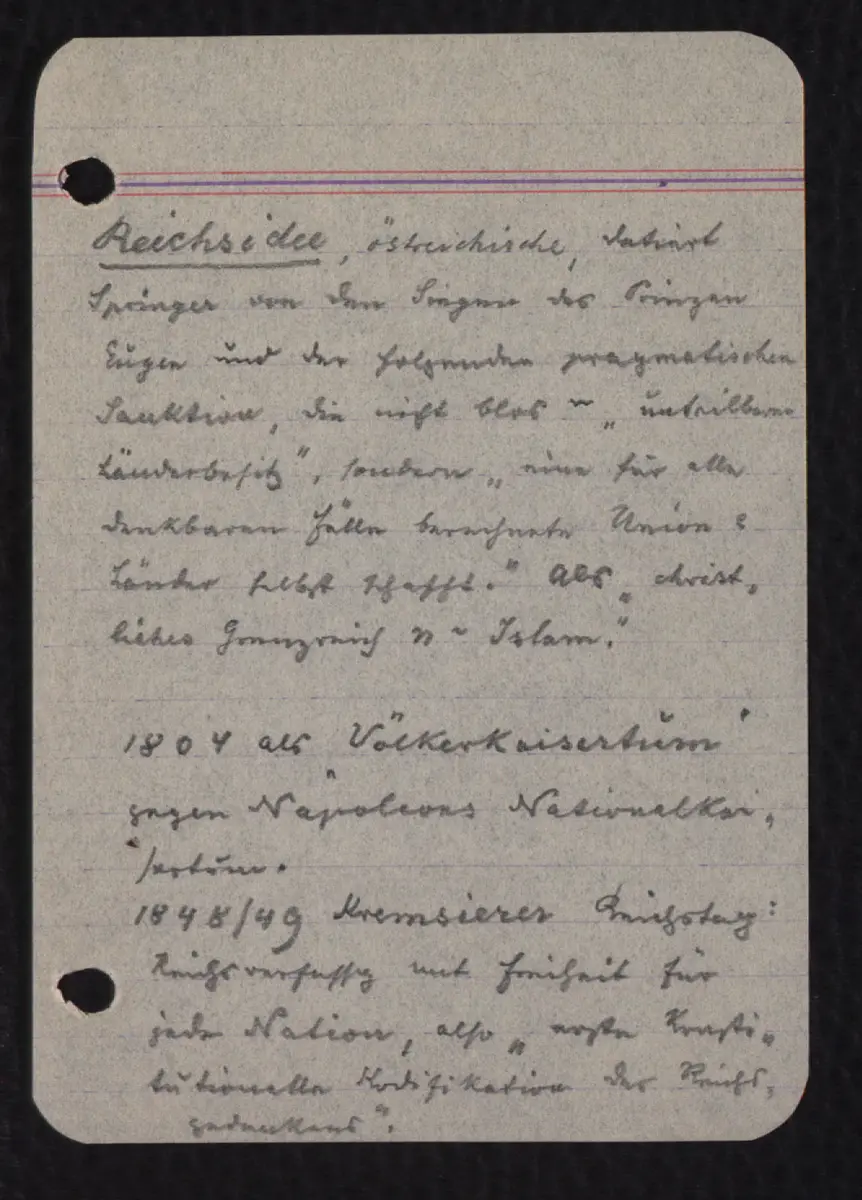 Reichsidee, östreichische, datiert
Springer von den Siegen des Prinzen
Eugen und der folgenden pragmatischen
Sanktion, die nicht blos „unteilbaren
Länderbesitz", sondern „eine für alle
denkbaren Fälle berechnete Union
Länder selbst schafft." Als „christ-
liches Grenzreich Islam."
1804 als "Völkerkaisertum"
gegen Napoleons Nationalkai-
sertum.
1848/49 Kremsierer Reichstag:
Reichsverfassg mit Freiheit für
jede Nation, also „erste konsti-
tutionelle Kodifikation des Reichs-
gedankens".